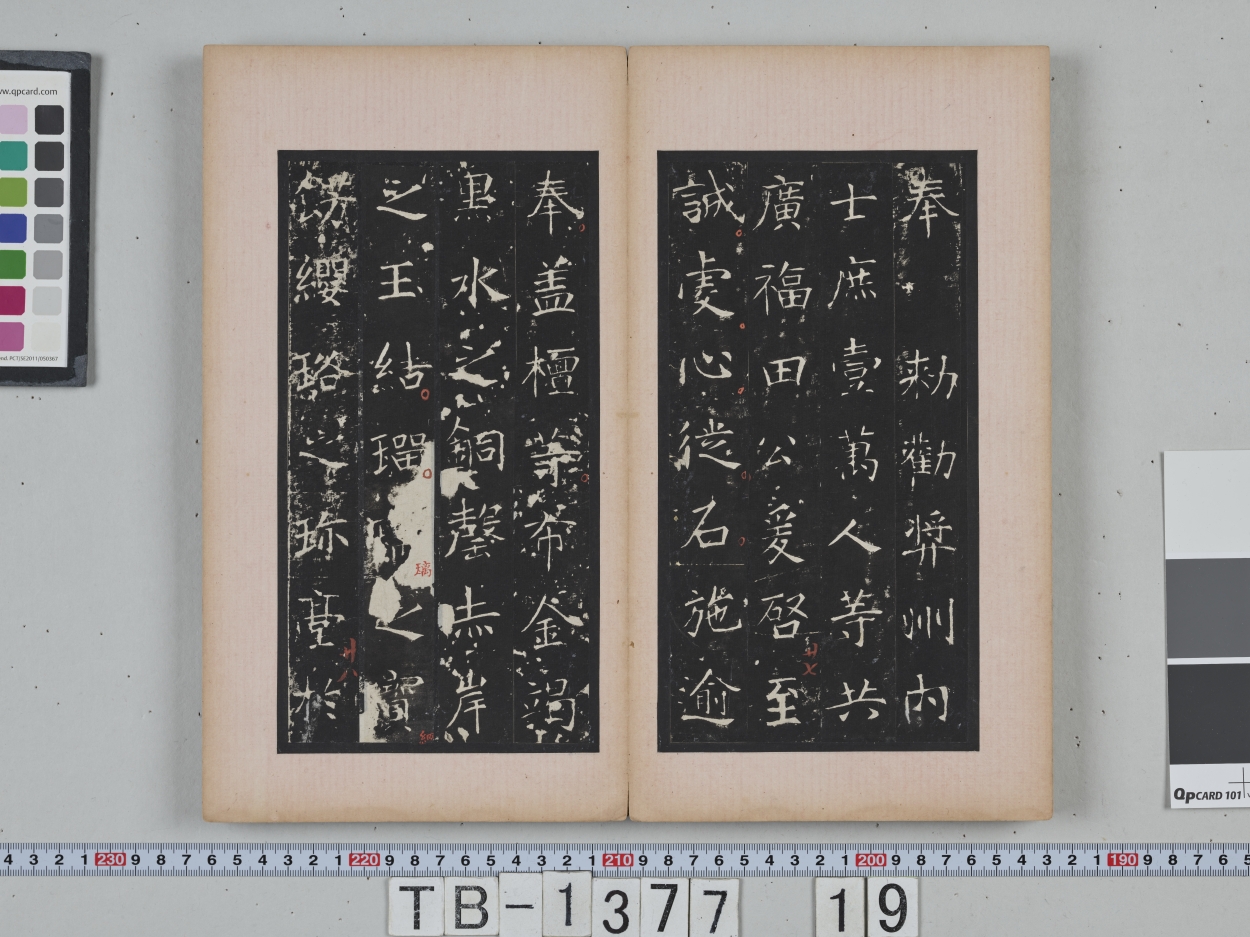 奉 勑勸奨州内
士庶壹萬人等共
廣福田公爰啓至
誠虔心徙石施逾
奉盖檀等布金竭
黒水之銅罄赤岸
之玉結瑠之寶
飾纓珞之珎臺於
廿七
璃
網
廿八
ww.qpcard.com
QpCARD 101
4 3 2 1 230 9 8 7 6 5 4 3 2 1 220 9 8 7 6 5 4 3 2 1 210 9 8 7 6 5 4 3 2 1 200 9 8 7 6 5 4 3 2 1 190 9 8 7 6 5
TB-1377 19